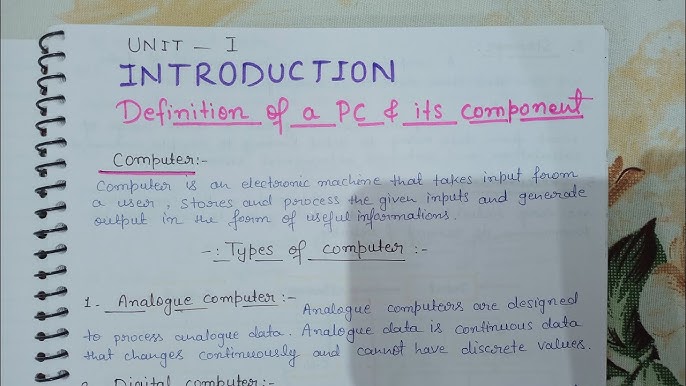 UNIT - I
INTRODUCTION
Definition of a PC & its component
Computer:-
Computer is an electronic machine that takes input form
a user, stores and process the given inputs and generade
output in the form of useful informations.
-: Types of computer :-
1. Analogue computer:-
Analogue computers are designed
to process analogue data. Analogue data is continuous data
that changes continuously and cannot have discrete values.
2. Digital computer:-